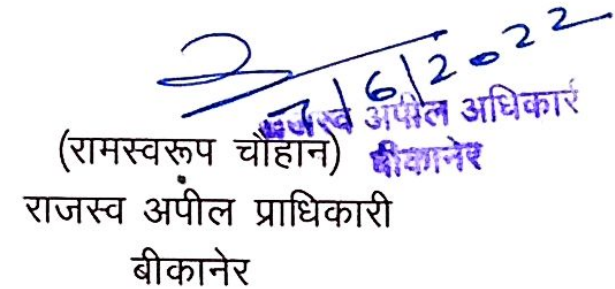 7/6/2022
राजस्व अपील अधिकारी
बीकानेर
(रामस्वरूप चौहान)
राजस्व अपील प्राधिकारी
बीकानेर